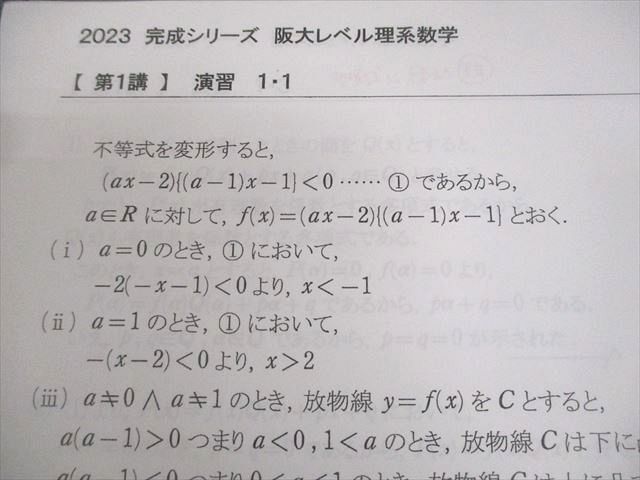 2023 完成シリーズ 阪大レベル理系数学
【 第1講 】 演習 1・1
不等式を変形すると,
(ax−2){(a−1)x−1}<0 …… ① であるから,
a∈R に対して, f(x)=(ax−2){(a−1)x−1} とおく.
(ⅰ) a=0 のとき, ① において,
−2(−x−1)<0 より, x<−1
(ⅱ) a=1 のとき, ① において,
−(x−2)<0 より, x>2
(ⅲ) a≠0 ∧ a≠1 のとき, 放物線 y=f(x) を C とすると,
a(a−1)>0 つまり a<0, 1<a のとき, 放物線 C は下に
a(a−1)<0 つまり 0<a<1 のとき, 放物線 C は上に凸で